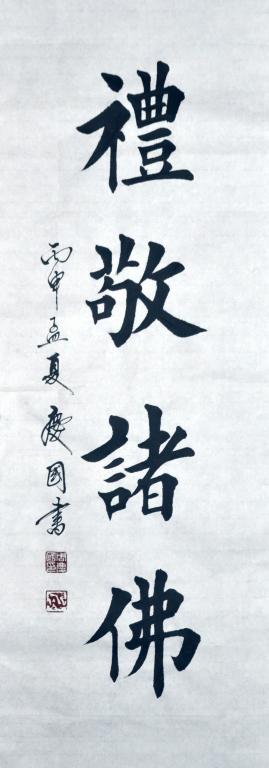 禮敬諸佛
丙申孟夏慶國書